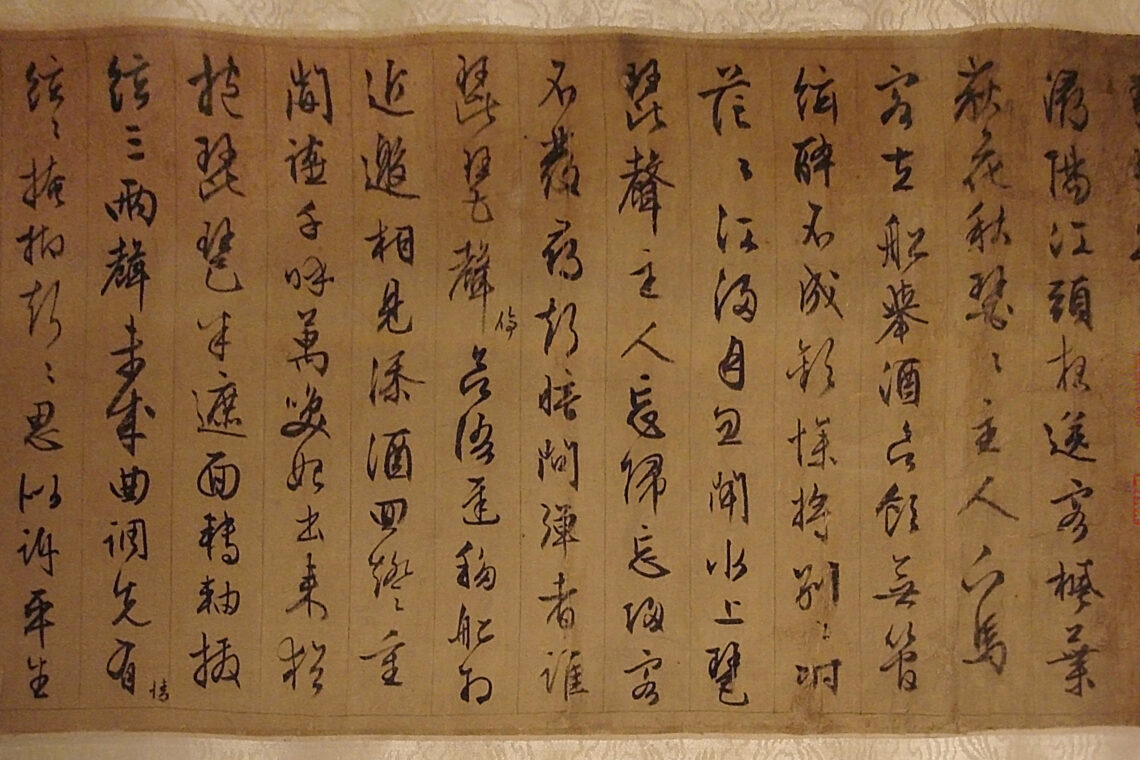 潯陽江頭夜送客楓葉
荻花秋瑟〻主人下馬
客在船舉酒欲飲無管
絃醉不成歡慘將別〻時
茫〻江浸月忽聞水上琶
琵聲主人忘歸忘歸客
不發尋声暗問彈者誰
琵琶聲停欲語遲移船相
近邀相見添酒回燈〻重
開讌千呼萬喚始出來猶
抱琵琶半遮面轉軸撥
絃三兩聲未成曲調先有情
絃〻掩抑声〻思似訴平生